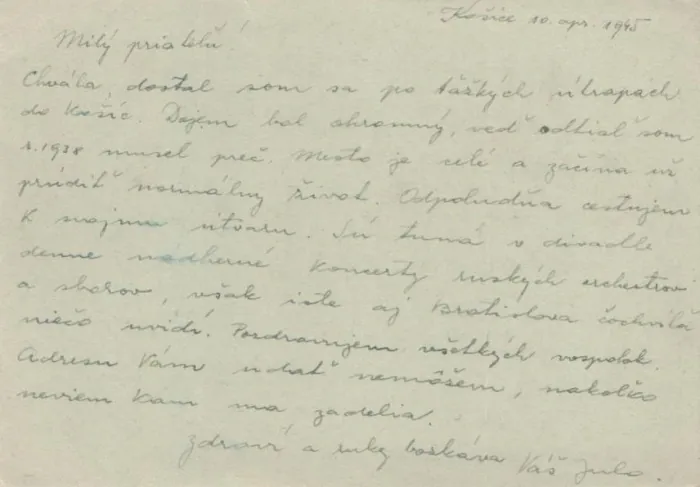 Košice 10. apr. 1945
Milý priateľu!
Chvála, dostal som sa po ťážkých útrapách
do Košíc. Dojem bol ohromný, veď odtiaľ som
r. 1938 musel preč. Mesto je celé a začína už
prúdiť normálny život. Odpoludňa cestujem
k mojmu útvaru. Sú tuná v divadle
denne nádherné koncerty ruských orchestrov
a sborov, však iste aj Bratislava čochvíľa
niečo uvidí. Pozdravujem všetkých vospolok.
Adresu Vám udať nemôšem, nakoľko
neviem kam ma zadelia.
Zdraví a ruky boskáva Váš Julo.